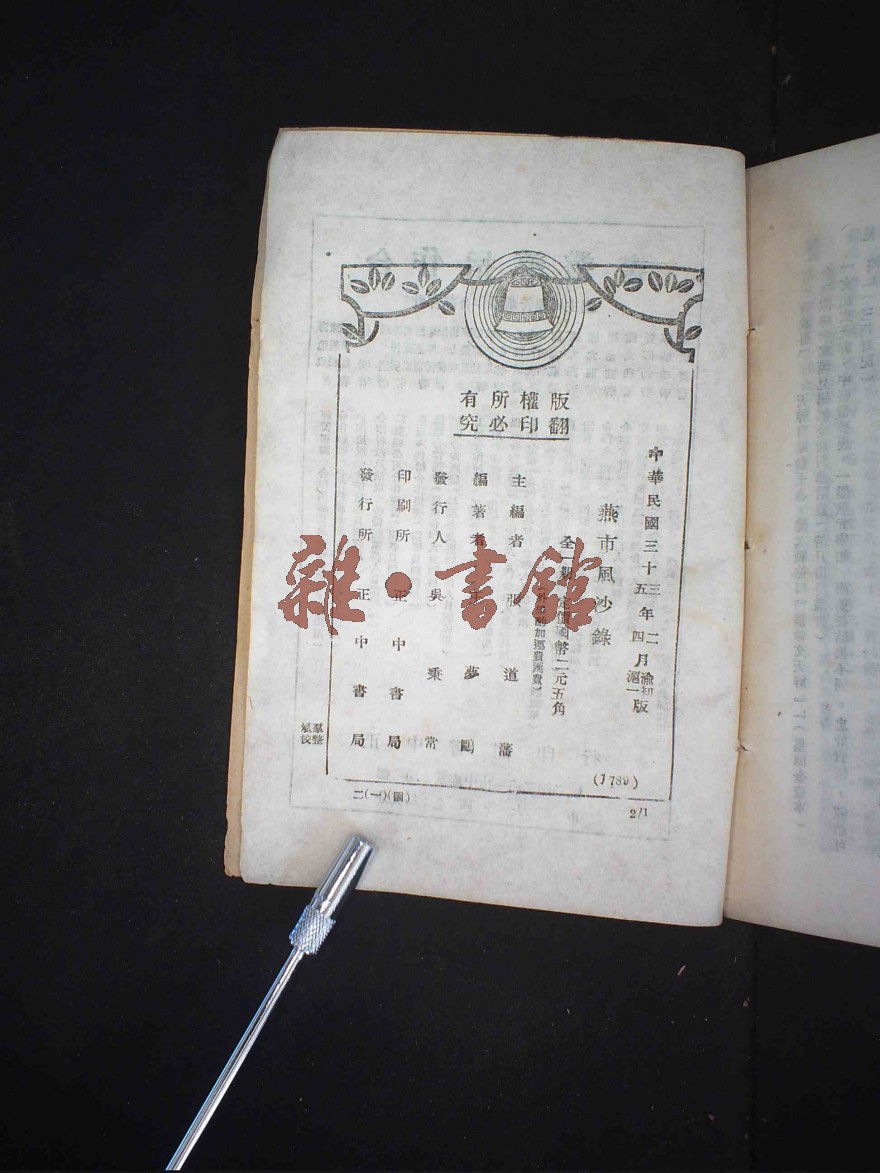 版權所有
翻印必究
中華民國三十三年二月渝初版
中華民國三十五年四月滬一版
燕市風沙錄
全一冊 定價國幣二元五角
加運費匯費
主編者 張道藩
編著者 王夢鷗
發行人 吳秉常
印刷所 正中書局
發行所 正中書局
(1789)
二(一)(圖)
2/1
雜·書館